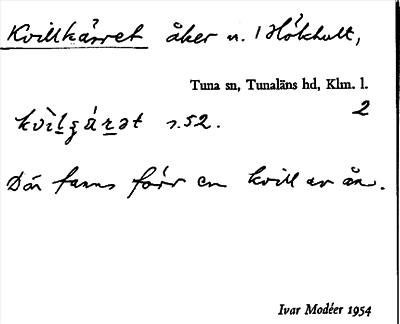 Kvillkärret åker n. Hökhult,
Tuna sn, Tunaläns hd, Klm. l.
2
s. 52.
Där fanns förr en kvill av ån.
Ivar Modéer 1954